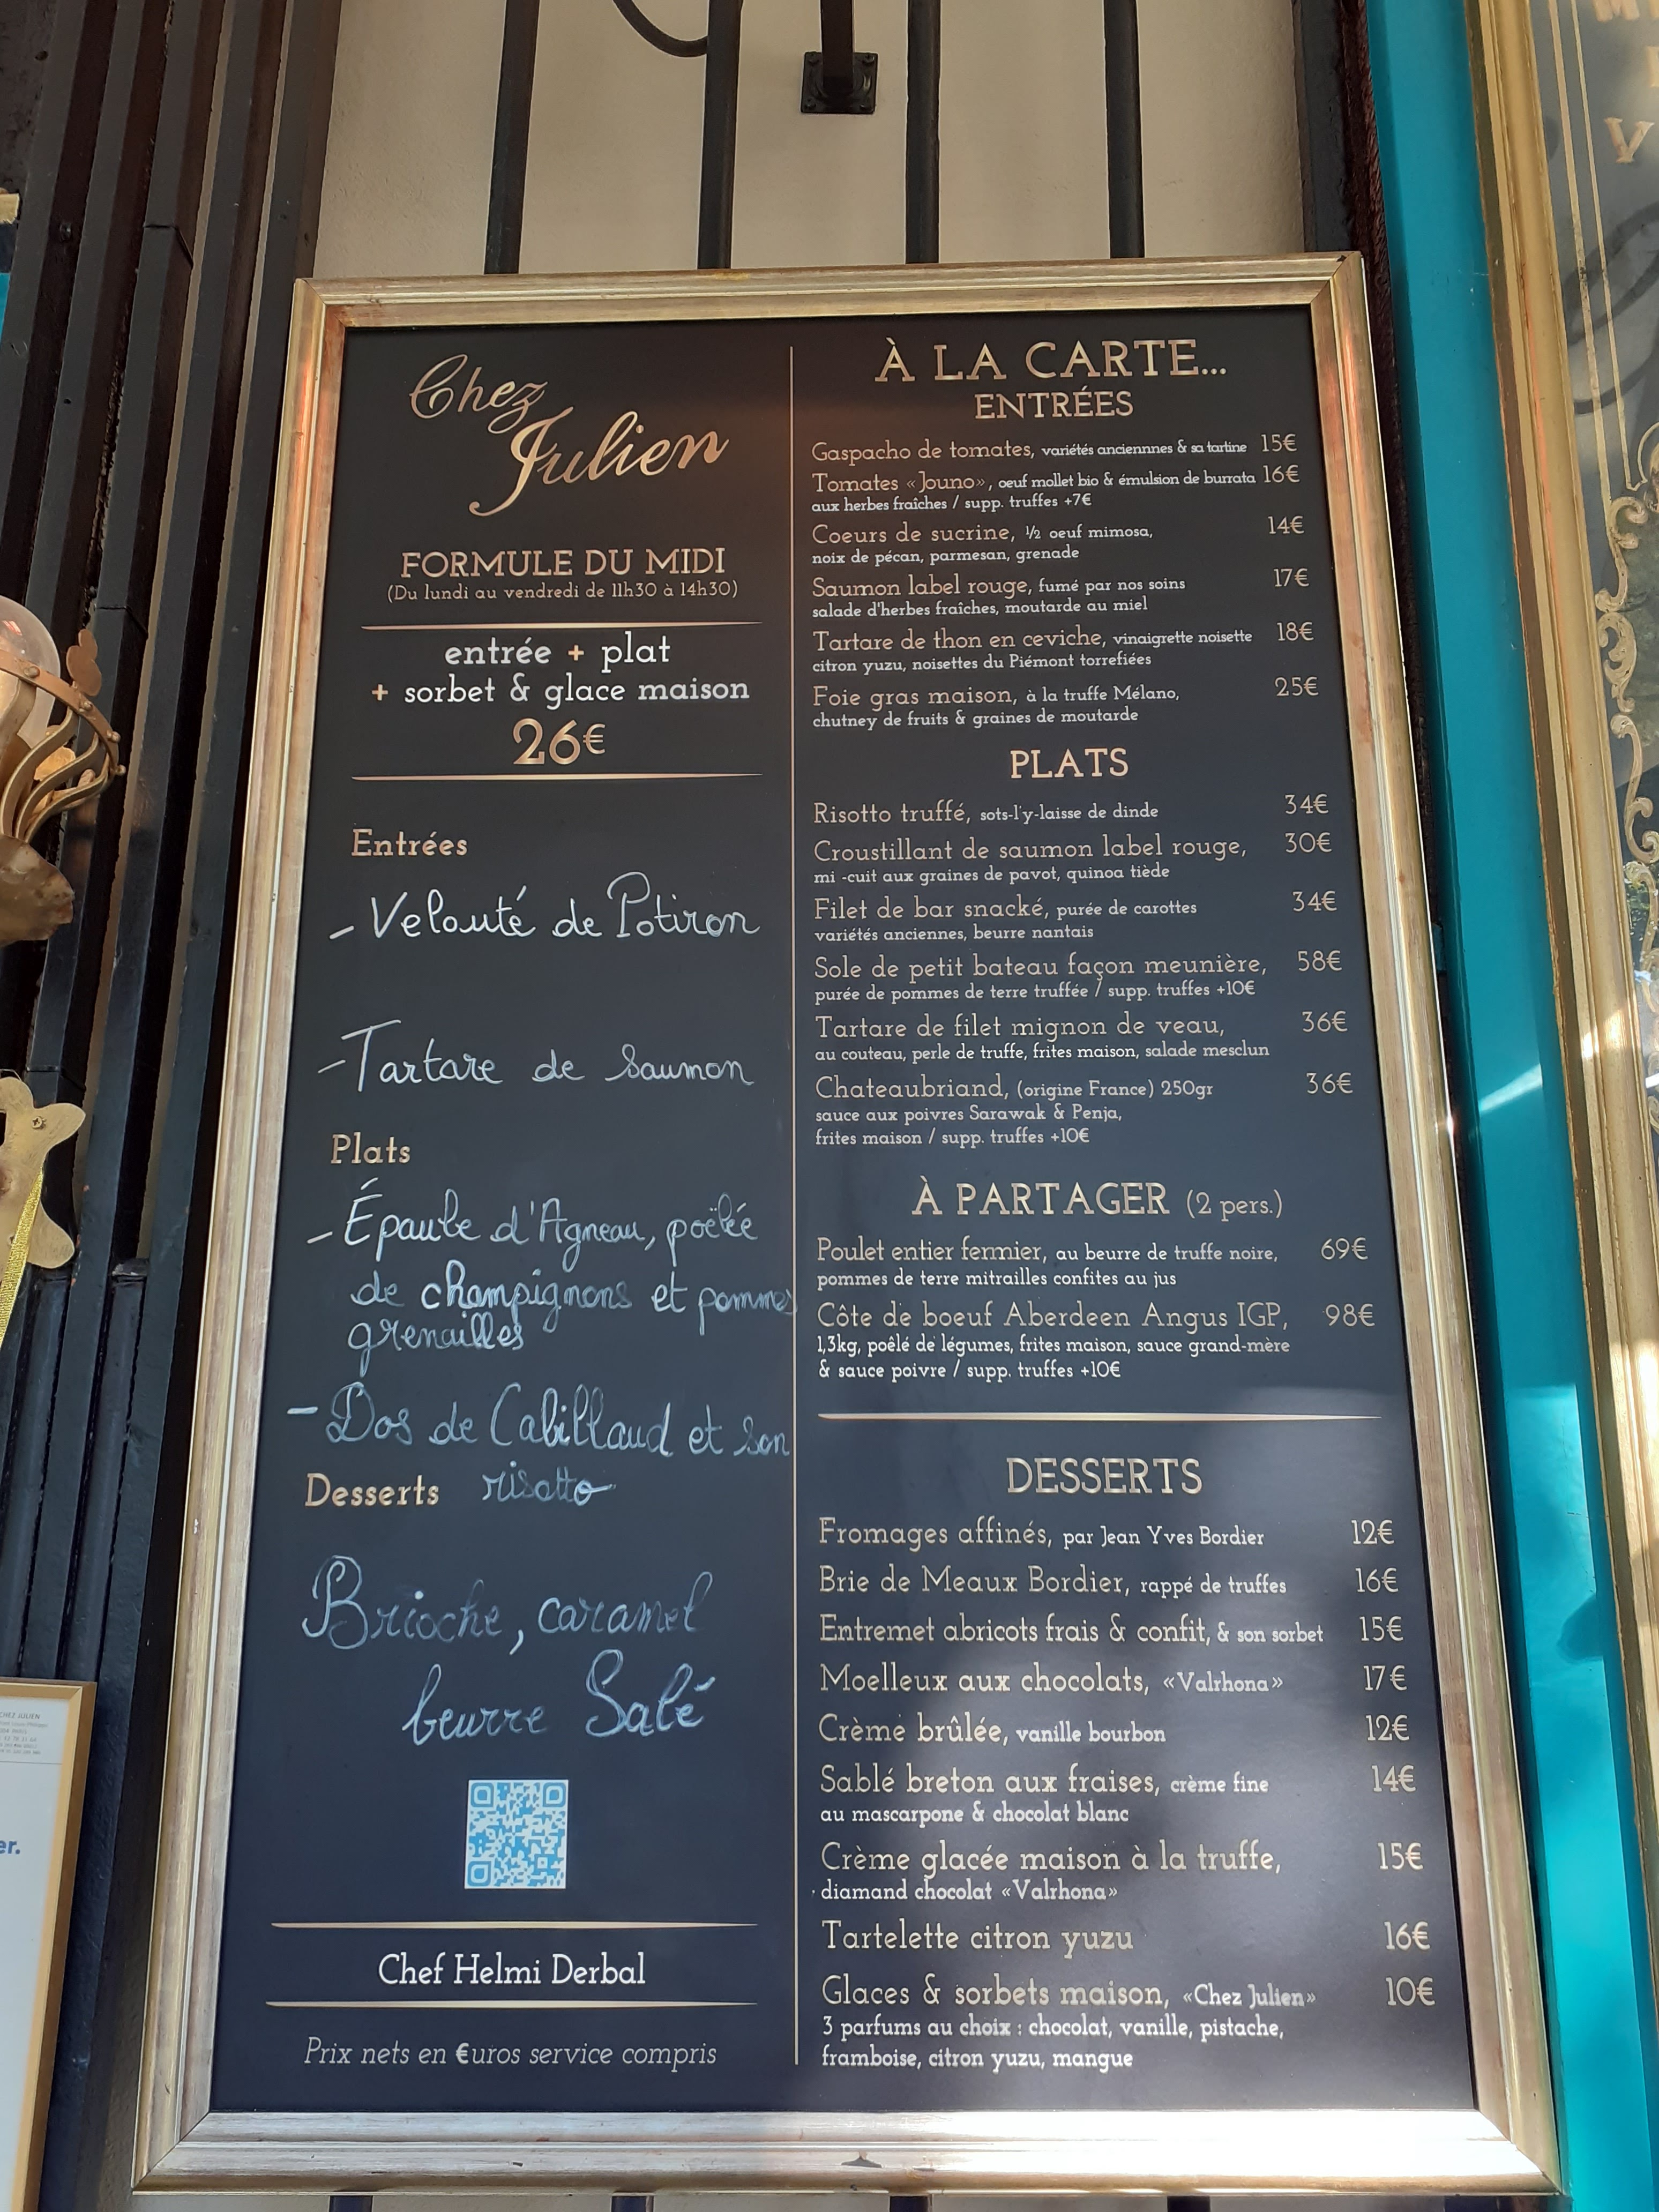 Chez
Julien
FORMULE DU MIDI
(Du lundi au vendredi de 11h30 à 14h30)
entrée + plat
+ sorbet & glace maison
26€
Entrées
- Velouté de Potiron
- Tartare de Saumon
Plats
- Épaule d'Agneau, poëlée
de champignons et pommes
grenailles
- Dos de Cabillaud et son
risotto
Desserts
Brioche, caramel
beurre Salé
Chef Helmi Derbal
Prix nets en €uros service compris
À LA CARTE...
ENTRÉES
Gaspacho de tomates, variétés anciennnes & sa tartine 15€
Tomates «Jouno», oeuf mollet bio & émulsion de burrata 16€
aux herbes fraîches / supp. truffes +7€
Coeurs de sucrine, ½ oeuf mimosa, 14€
noix de pécan, parmesan, grenade
Saumon label rouge, fumé par nos soins 17€
salade d'herbes fraîches, moutarde au miel
Tartare de thon en ceviche, vinaigrette noisette 18€
citron yuzu, noisettes du Piémont torrefiées
Foie gras maison, à la truffe Mélano, 25€
chutney de fruits & graines de moutarde
PLATS
Risotto truffé, sots-l'y-laisse de dinde 34€
Croustillant de saumon label rouge, 30€
mi -cuit aux graines de pavot, quinoa tiède
Filet de bar snacké, purée de carottes 34€
variétés anciennes, beurre nantais
Sole de petit bateau façon meunière, 58€
purée de pommes de terre truffée / supp. truffes +10€
Tartare de filet mignon de veau, 36€
au couteau, perle de truffe, frites maison, salade mesclun
Chateaubriand, (origine France) 250gr 36€
sauce aux poivres Sarawak & Penja,
frites maison / supp. truffes +10€
À PARTAGER (2 pers.)
Poulet entier fermier, au beurre de truffe noire, 69€
pommes de terre mitrailles confites au jus
Côte de boeuf Aberdeen Angus IGP, 98€
1,3kg, poêlé de légumes, frites maison, sauce grand-mère
& sauce poivre / supp. truffes +10€
DESSERTS
Fromages affinés, par Jean Yves Bordier 12€
Brie de Meaux Bordier, rappé de truffes 16€
Entremet abricots frais & confit, & son sorbet 15€
Moelleux aux chocolats, «Valrhona» 17€
Crème brûlée, vanille bourbon 12€
Sablé breton aux fraises, crème fine 14€
au mascarpone & chocolat blanc
Crème glacée maison à la truffe, 15€
diamand chocolat «Valrhona»
Tartelette citron yuzu 16€
Glaces & sorbets maison, «Chez Julien» 10€
3 parfums au choix : chocolat, vanille, pistache,
framboise, citron yuzu, mangue
CHEZ JULIEN
er.
V